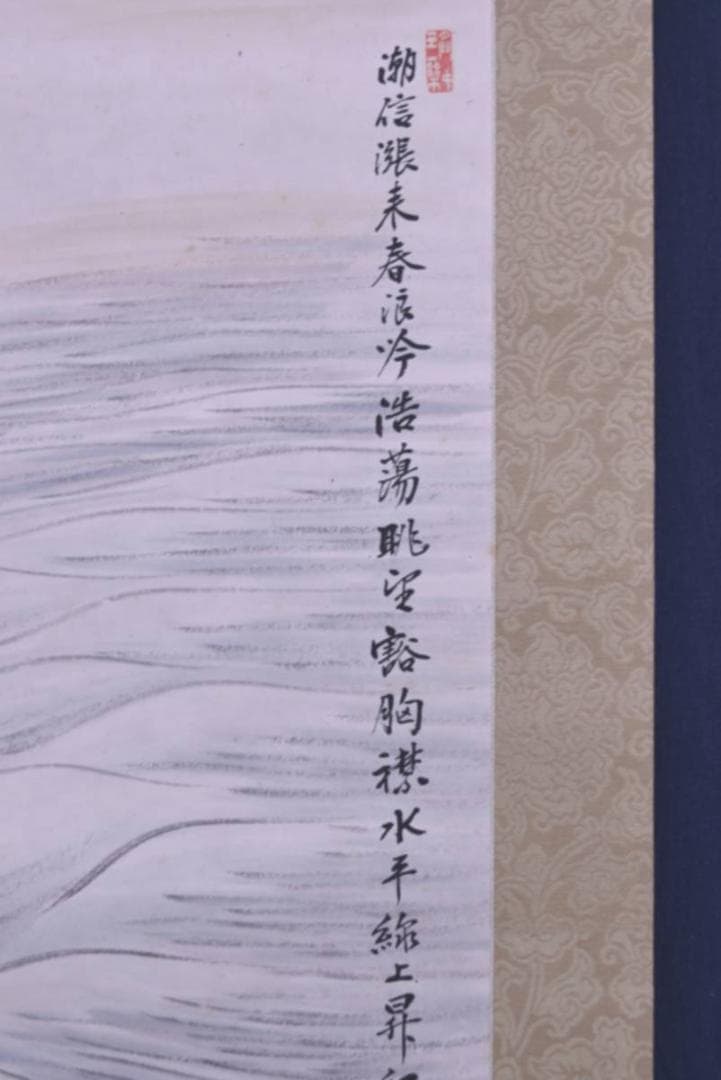 潮信漲来春浪吟浩蕩眺望豁胸襟水平線上昇